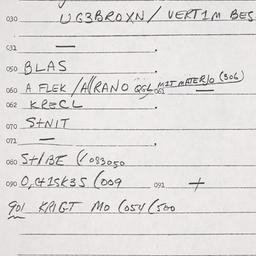 030 UG3BROXN / VERT1M BES
031 —
050 BLAS
060 A FLEK /A(RANO QGL MIT MATER/O (506)
062 KRECL 061 —
070 S+NIT
071 —
080 S+/BE (/083050
090 0,C+1SK3S (009 091 +
901 KRIGT MO (054 (500